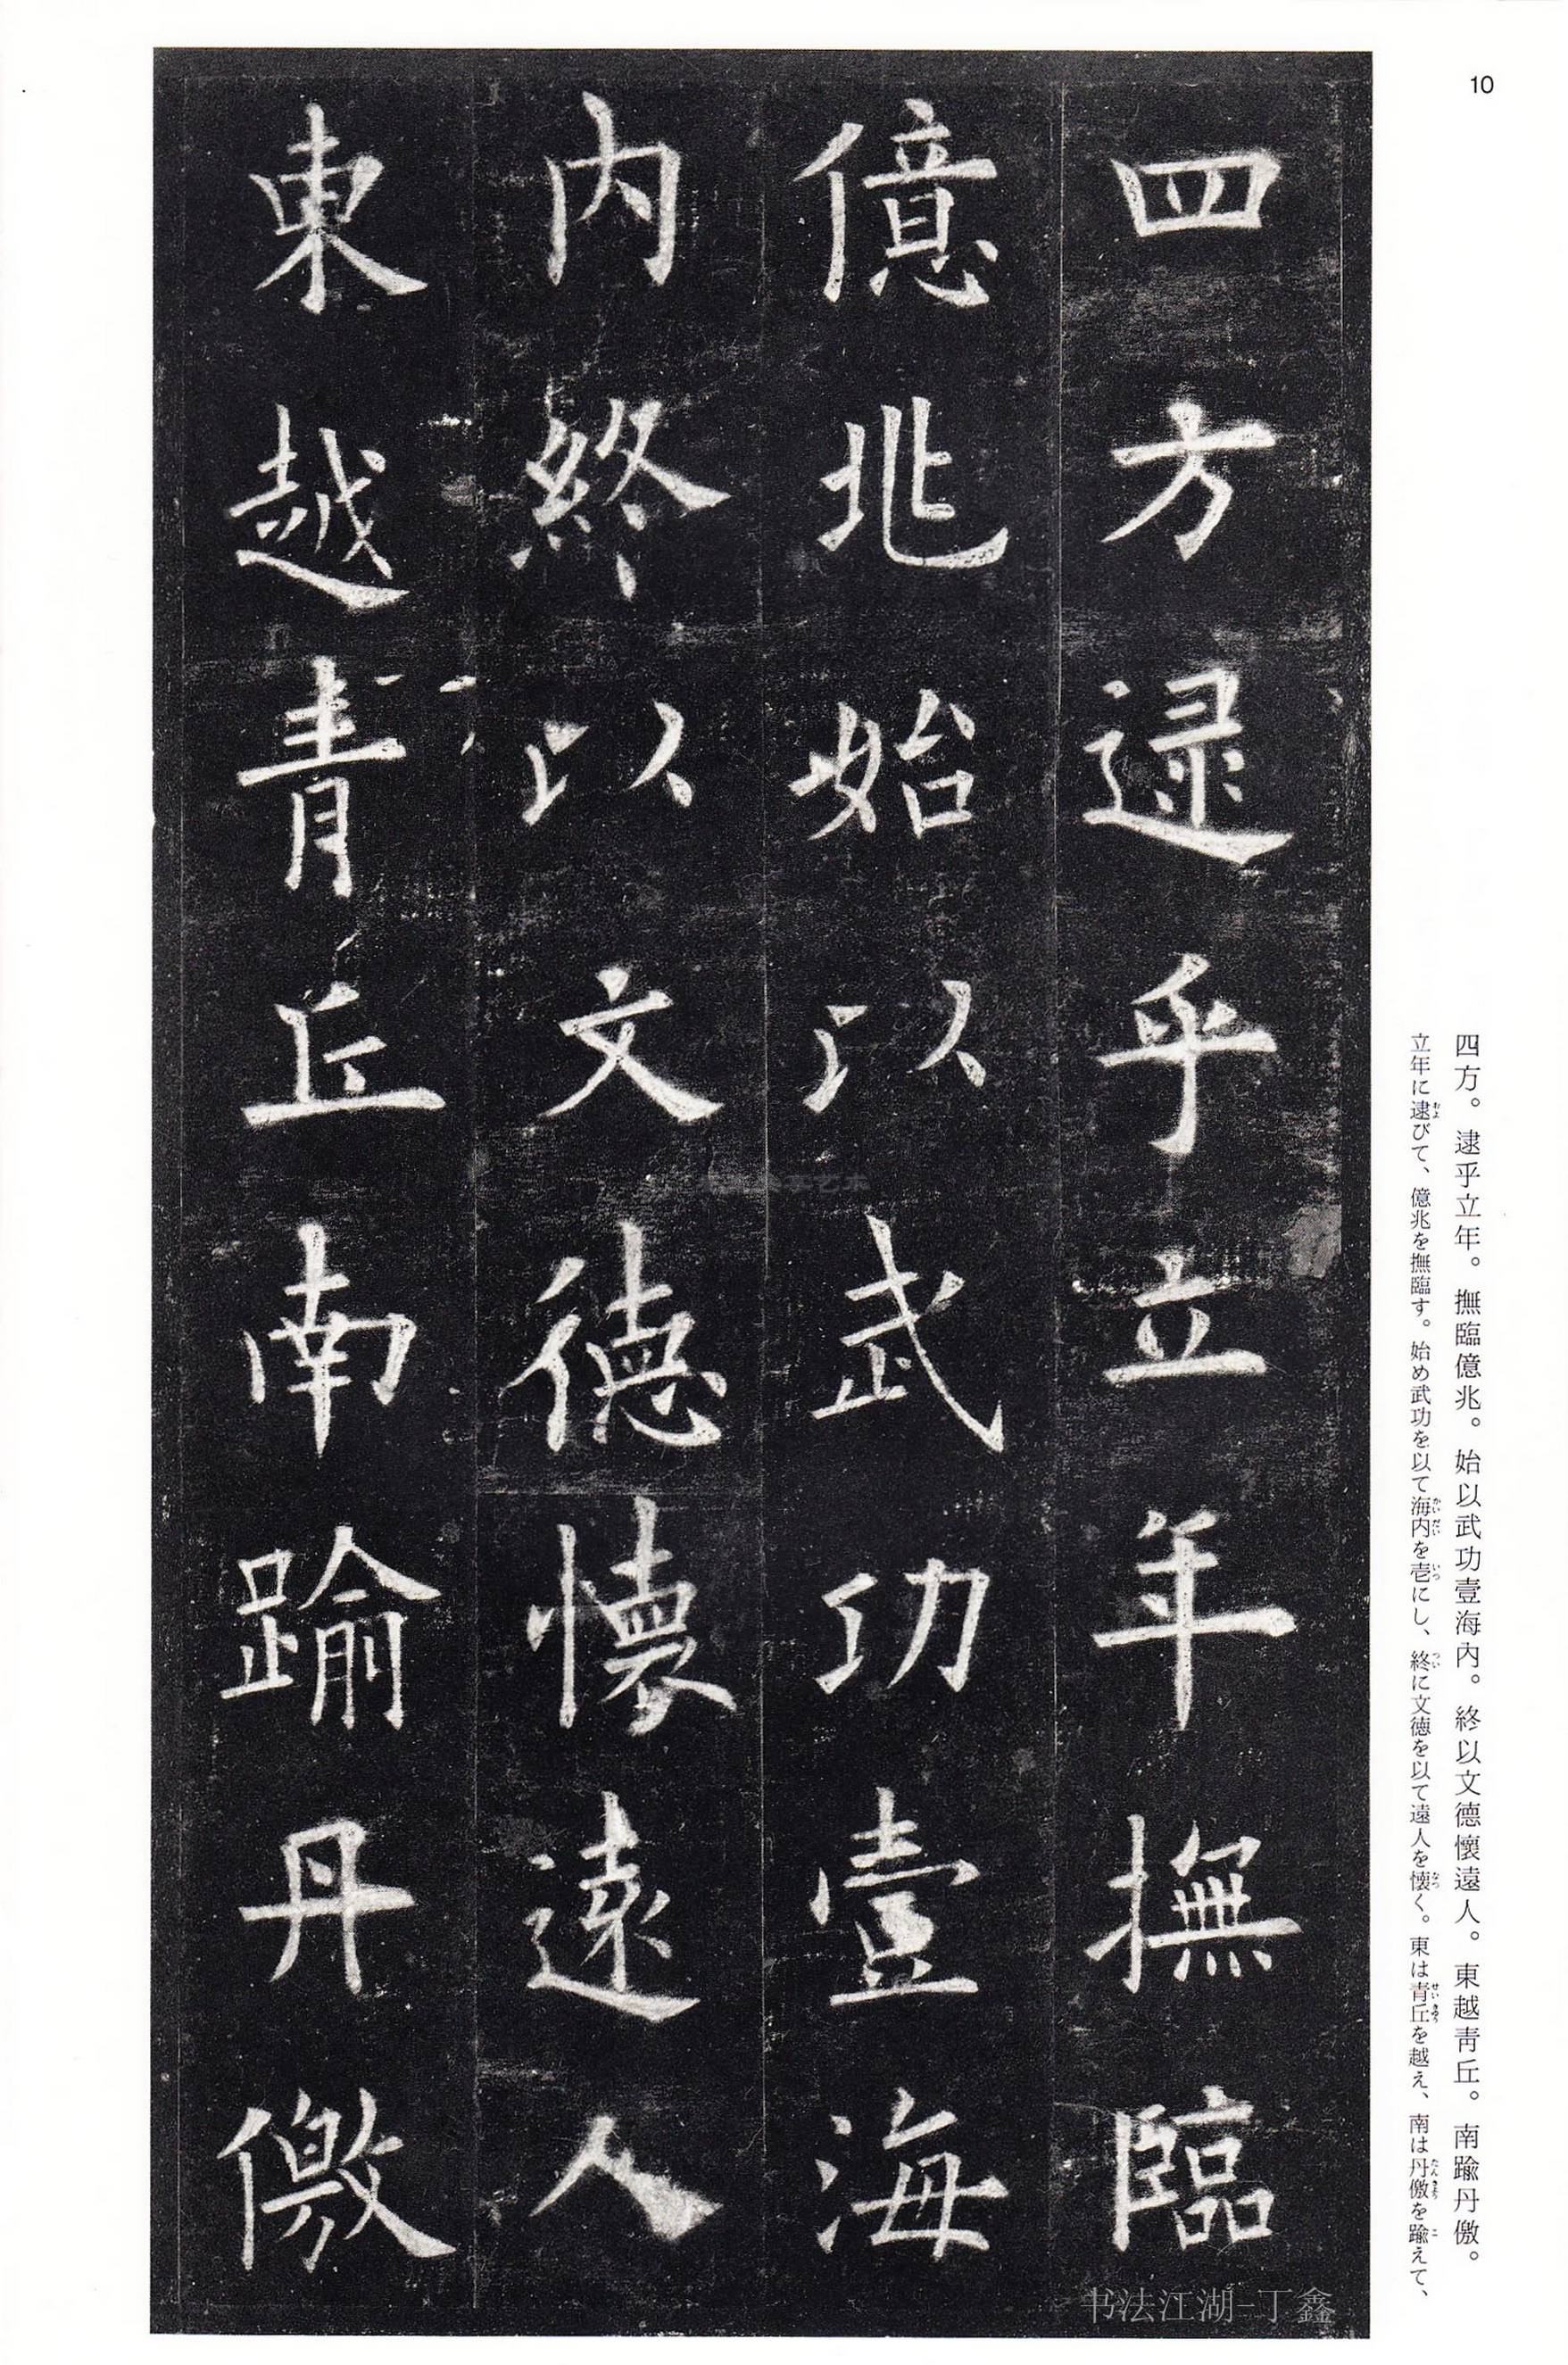 10
四方逯乎立年撫臨
億兆始以武功壹海
内終以文徳懷遠人
東越青丘南踰丹儌
四方。逮乎立年。撫臨億兆。始以武功壹海内。終以文德懷遠人。東越靑丘。南踰丹儌。
立年に逮びて、億兆を撫臨す。始め武功を以て海内を壱にし、終に文徳を以て遠人を懐く。東は青丘を越え、南は丹儌を踰えて、
书法江湖-丁鑫